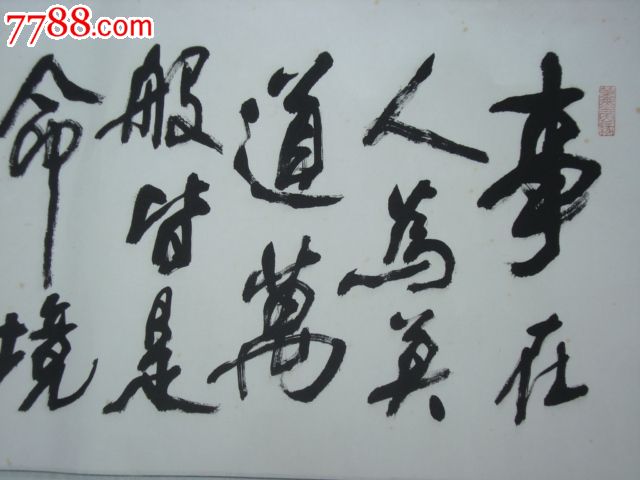 7788.com
事在
人為莫
道萬
般皆是
命境